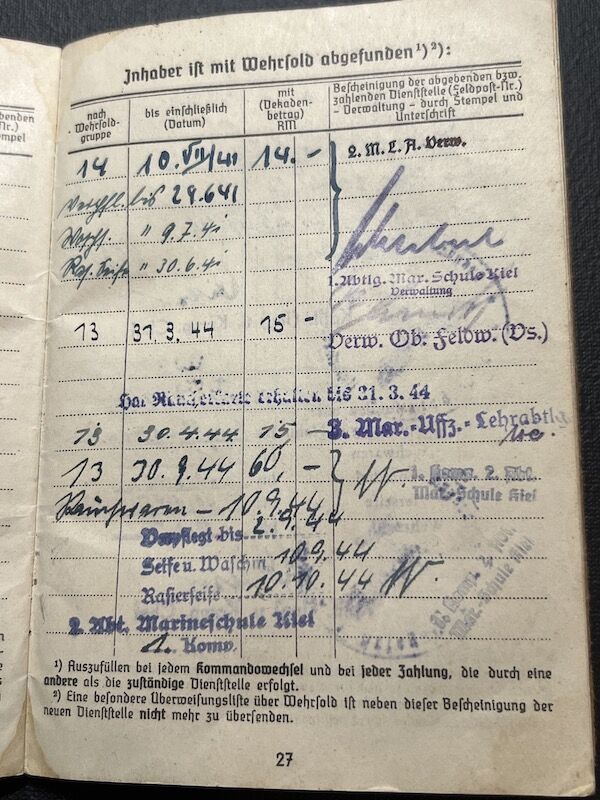 Inhaber ist mit Wehrsold abgefunden ¹) ²):
nach Wehrsold-gruppe
bis einschließlich (Datum)
mit (Dekaden-betrag) RM
Bescheinigung der abgebenden bzw. zahlenden Dienststelle (Feldpost-Nr.) – Verwaltung – durch Stempel und Unterschrift
14 10. VII/41 14.- 2. M.E.A. Verw.
Verpfl. bis 29.6.41
" 9.7.41
" 30.6.41
1. Abtlg. Mar. Schule Kiel
Verwaltung
13 31.3.44 15 -
Verw. Ob. Feldw. (Vs.)
Hat Raucherkarte erhalten bis 31.3.44
13 30.4.44 15 - 3. Mar.-Uffz.-Lehrabtlg.
13 30.9.44 60,- 1. Komp. 2. Abt.
Mar.-Schule Kiel
Rauchwaren – 10.9.44
Verpflegt bis 2.9.44
Seife u. Waschm 10.9.44
Rasierseife 10.10.44
2. Abt. Marineschule Kiel
1. Komp.
¹) Auszufüllen bei jedem Kommandowechsel und bei jeder Zahlung, die durch eine
andere als die zuständige Dienststelle erfolgt.
²) Eine besondere Überweisungsliste über Wehrsold ist neben dieser Bescheinigung der
neuen Dienststelle nicht mehr zu übersenden.
27